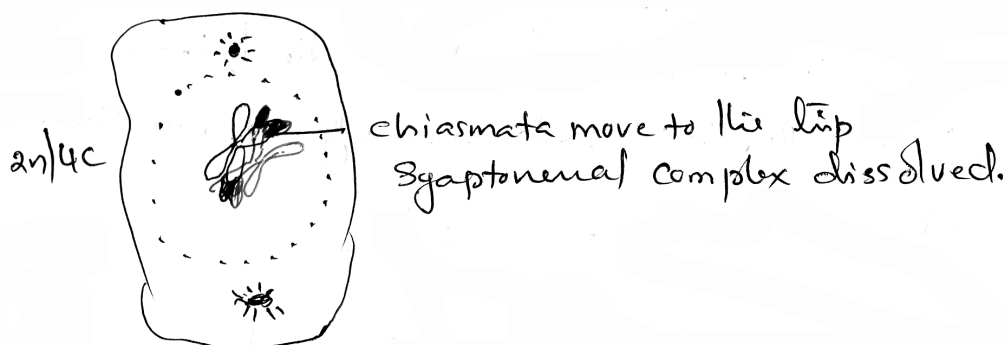 2n/4C
chiasmata move to the tip
Syaptonemal complex dissolved.